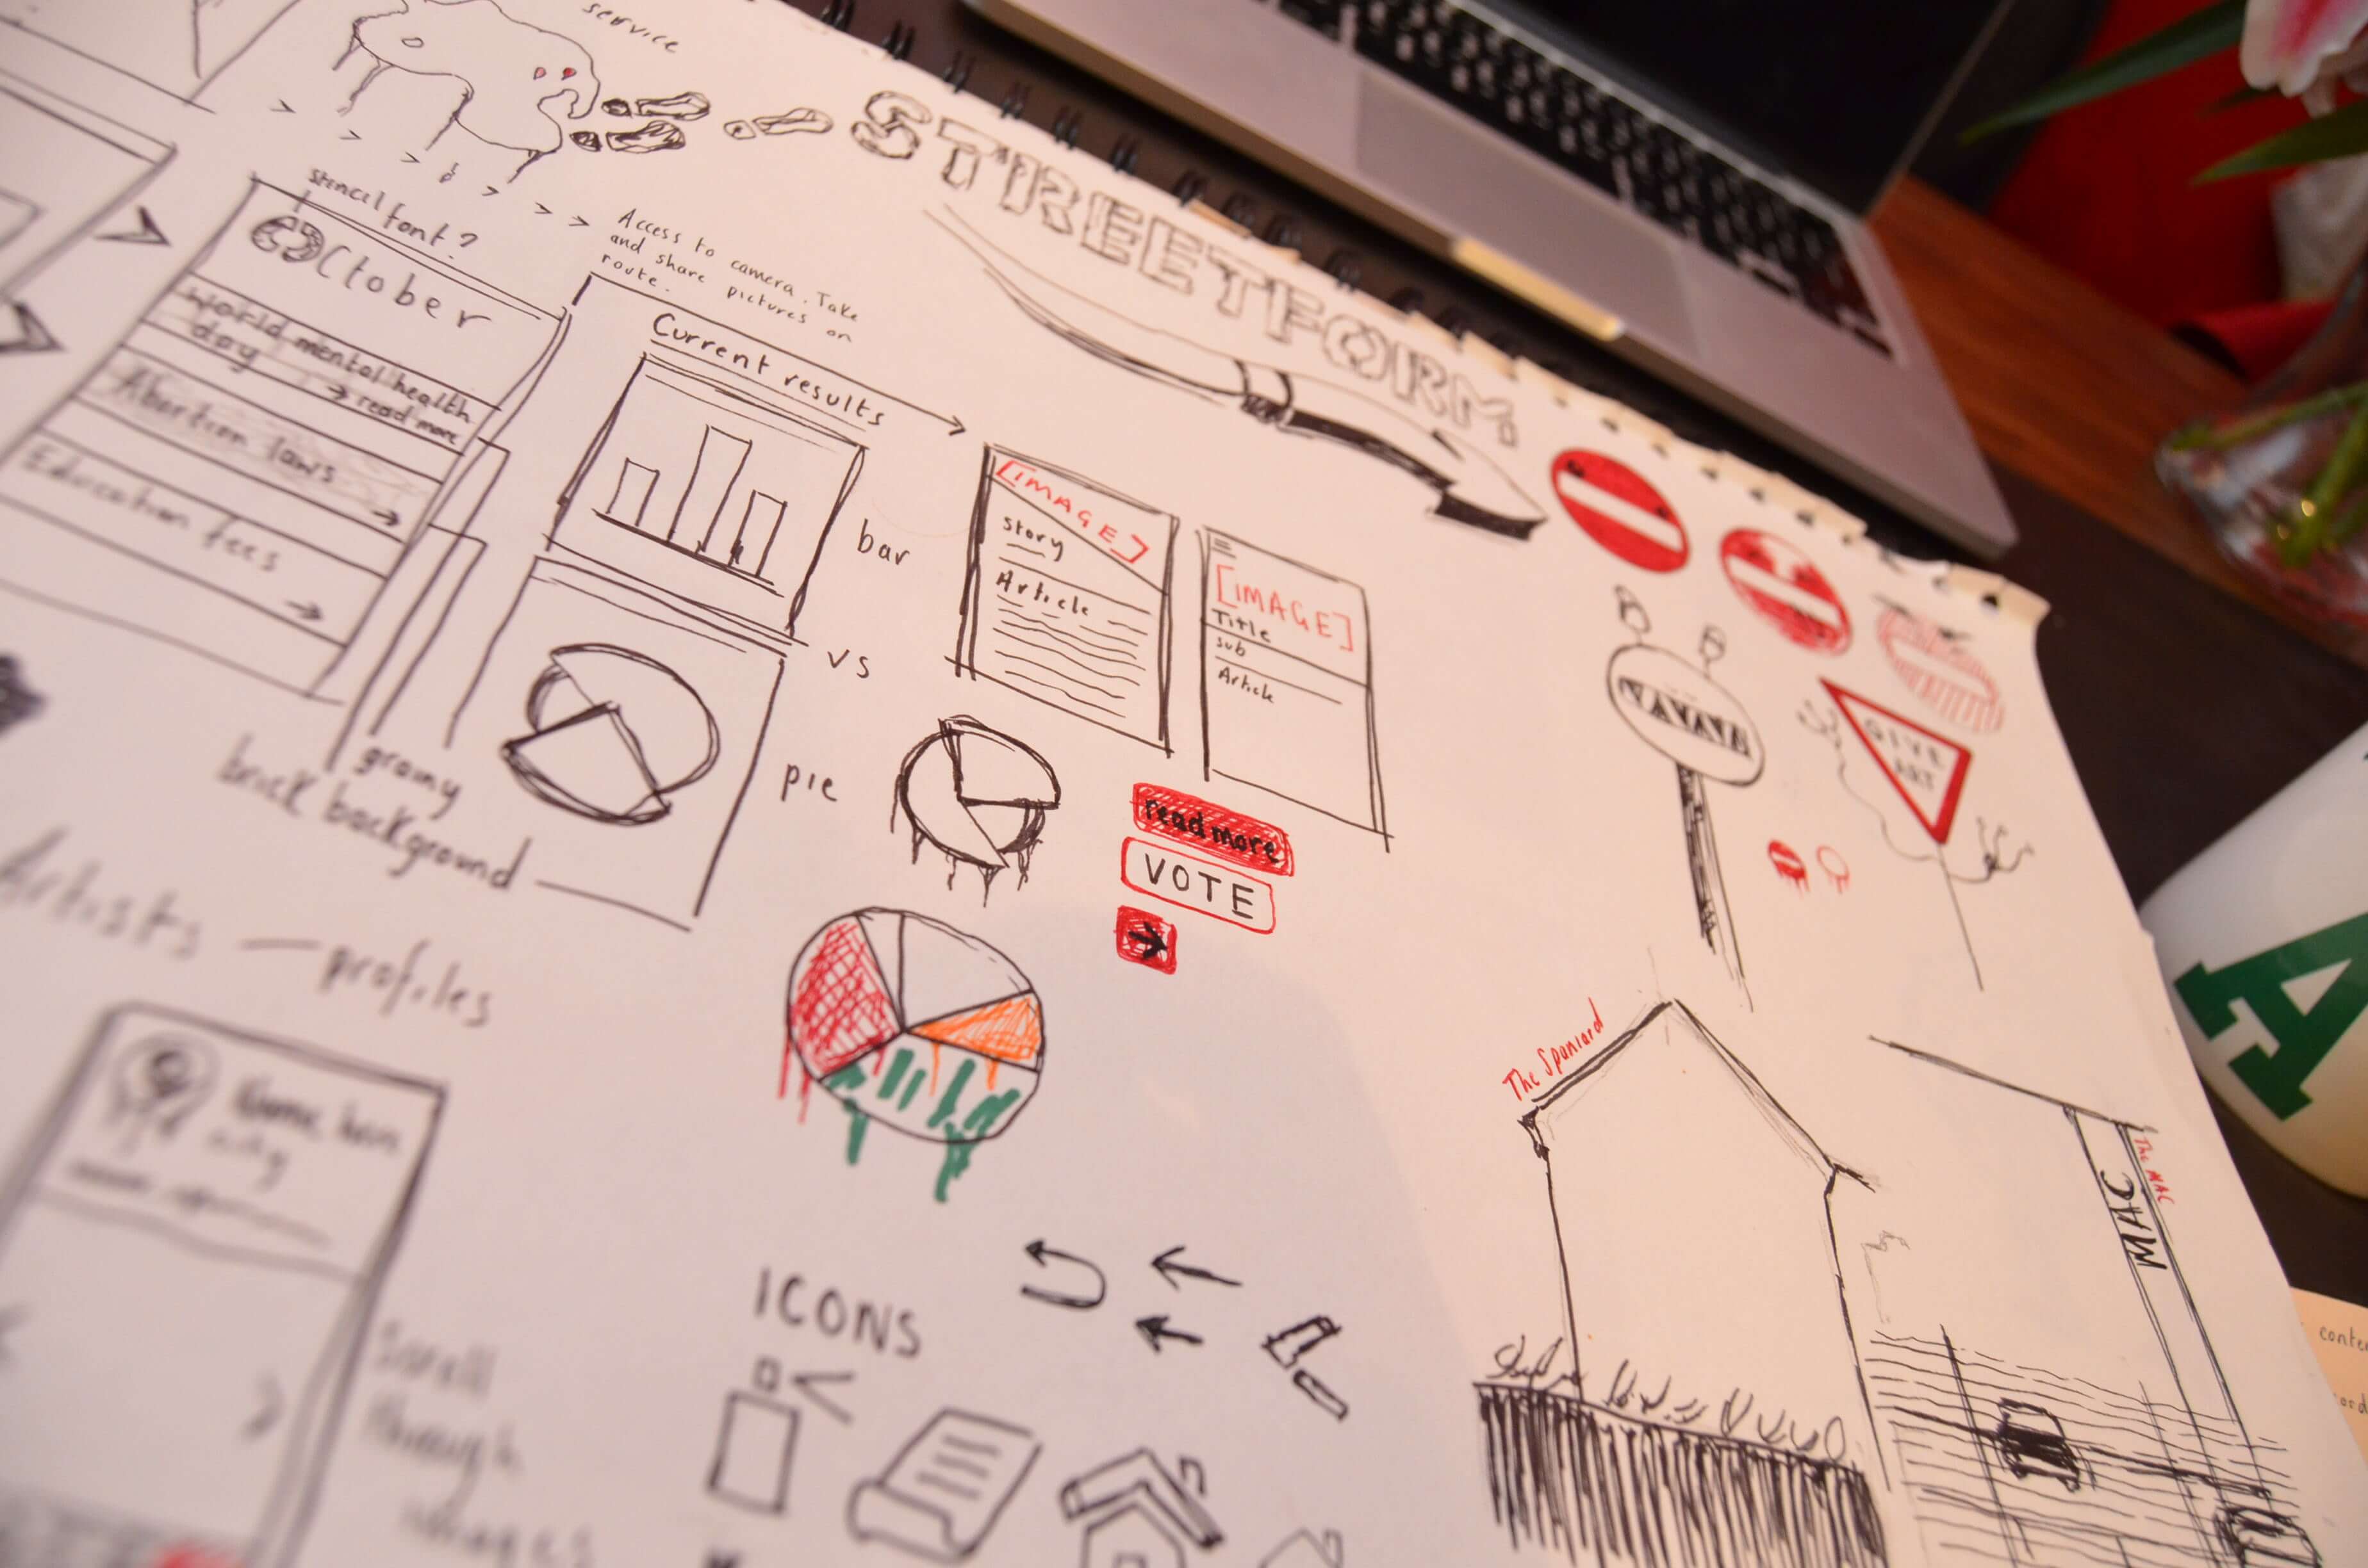 service
STREETFORM
stencil font?
October
world mental health
day
→ read more
Abortion laws
Education fees
Access to camera. Take
and share pictures on
route.
Current results
bar
vs
pie
[IMAGE]
story
Article
[IMAGE]
Title
sub
Article
read more
VOTE
GIVE
ART
grainy
brick background
Artists - profiles
Name here
city
Scroll
through
images
ICONS
The Spaniard
The MAC
MAC
A